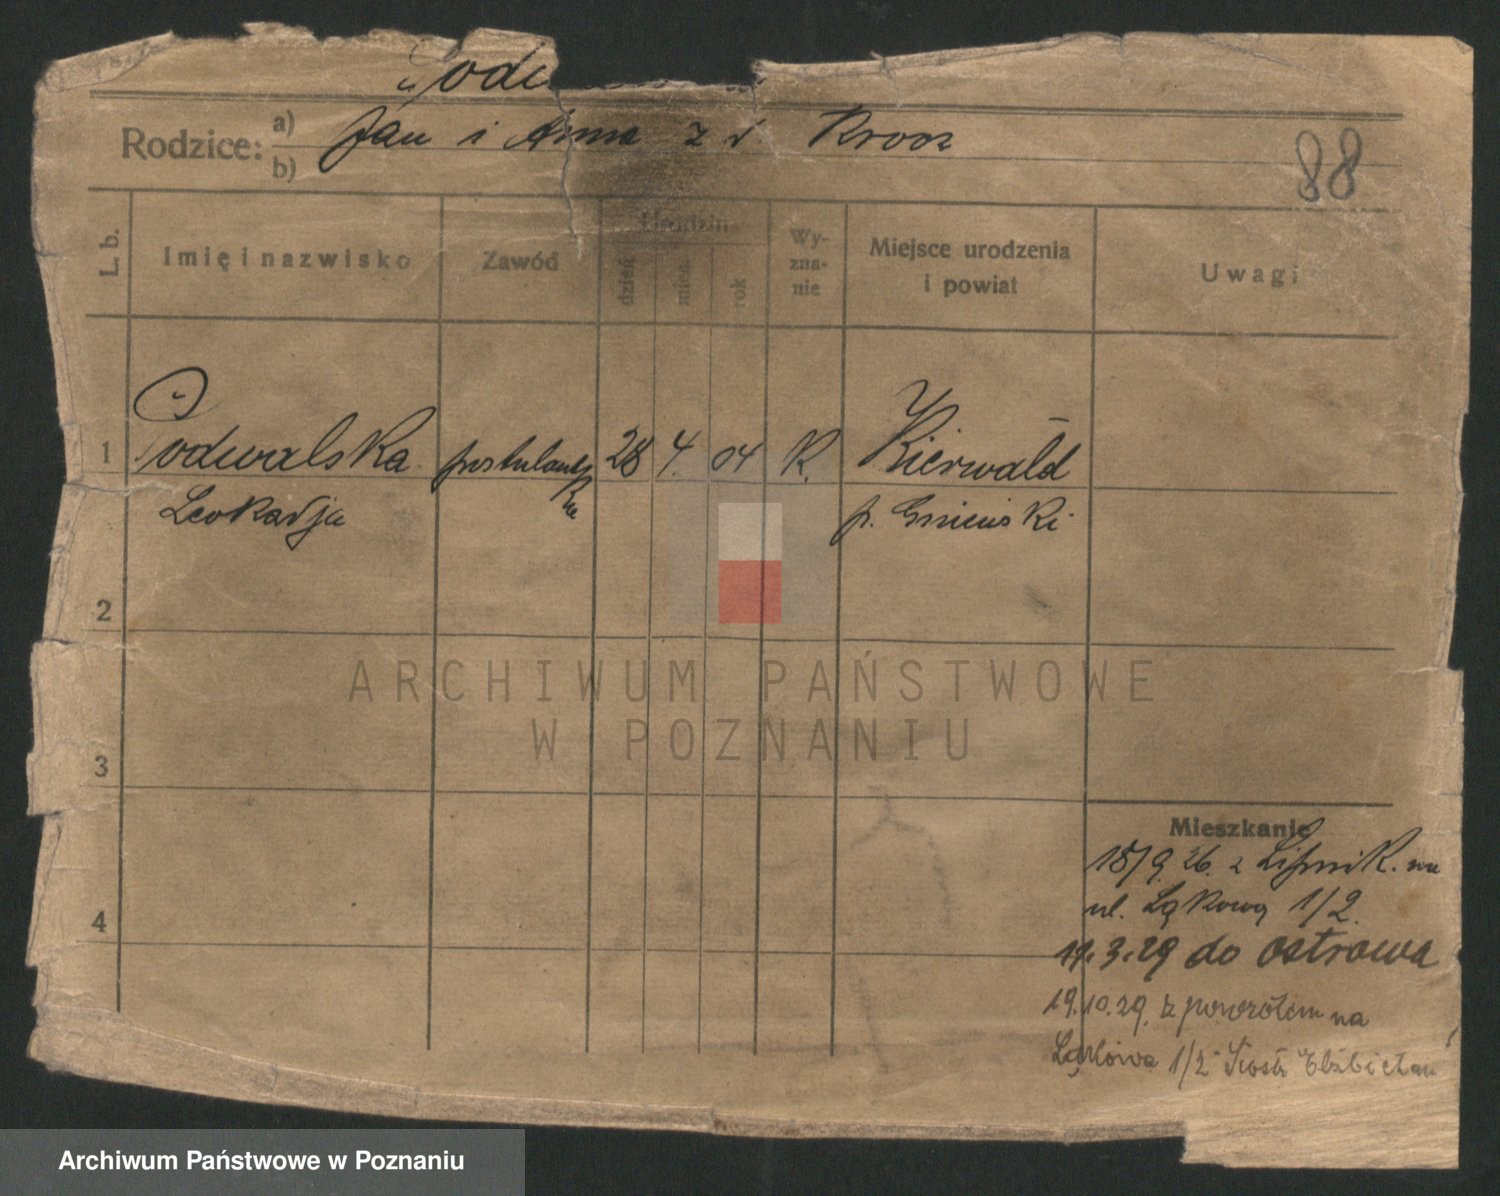 Rodzice: a) Jan i Anna z d. Kroor
b)
88
L. b.
Imię i nazwisko
Zawód
Urodzin
dzień
mies.
rok
Wy-
zna-
nie
Miejsce urodzenia
i powiat
Uwagi
1 Podwalska postulant 28 4. 04 R. Kierwałd
Leokadja ka p. Gnieński
2
3
4
ARCHIWUM PAŃSTWOWE
W POZNANIU
Mieszkanie
18/9. 26. z Lipnik. na
ul. Łąkową 1/2.
19.3.29 do Ostrowa
19.10.29. z powrotem na
Łąkowa 1/2 Siostr Elżbietan
Archiwum Państwowe w Poznaniu